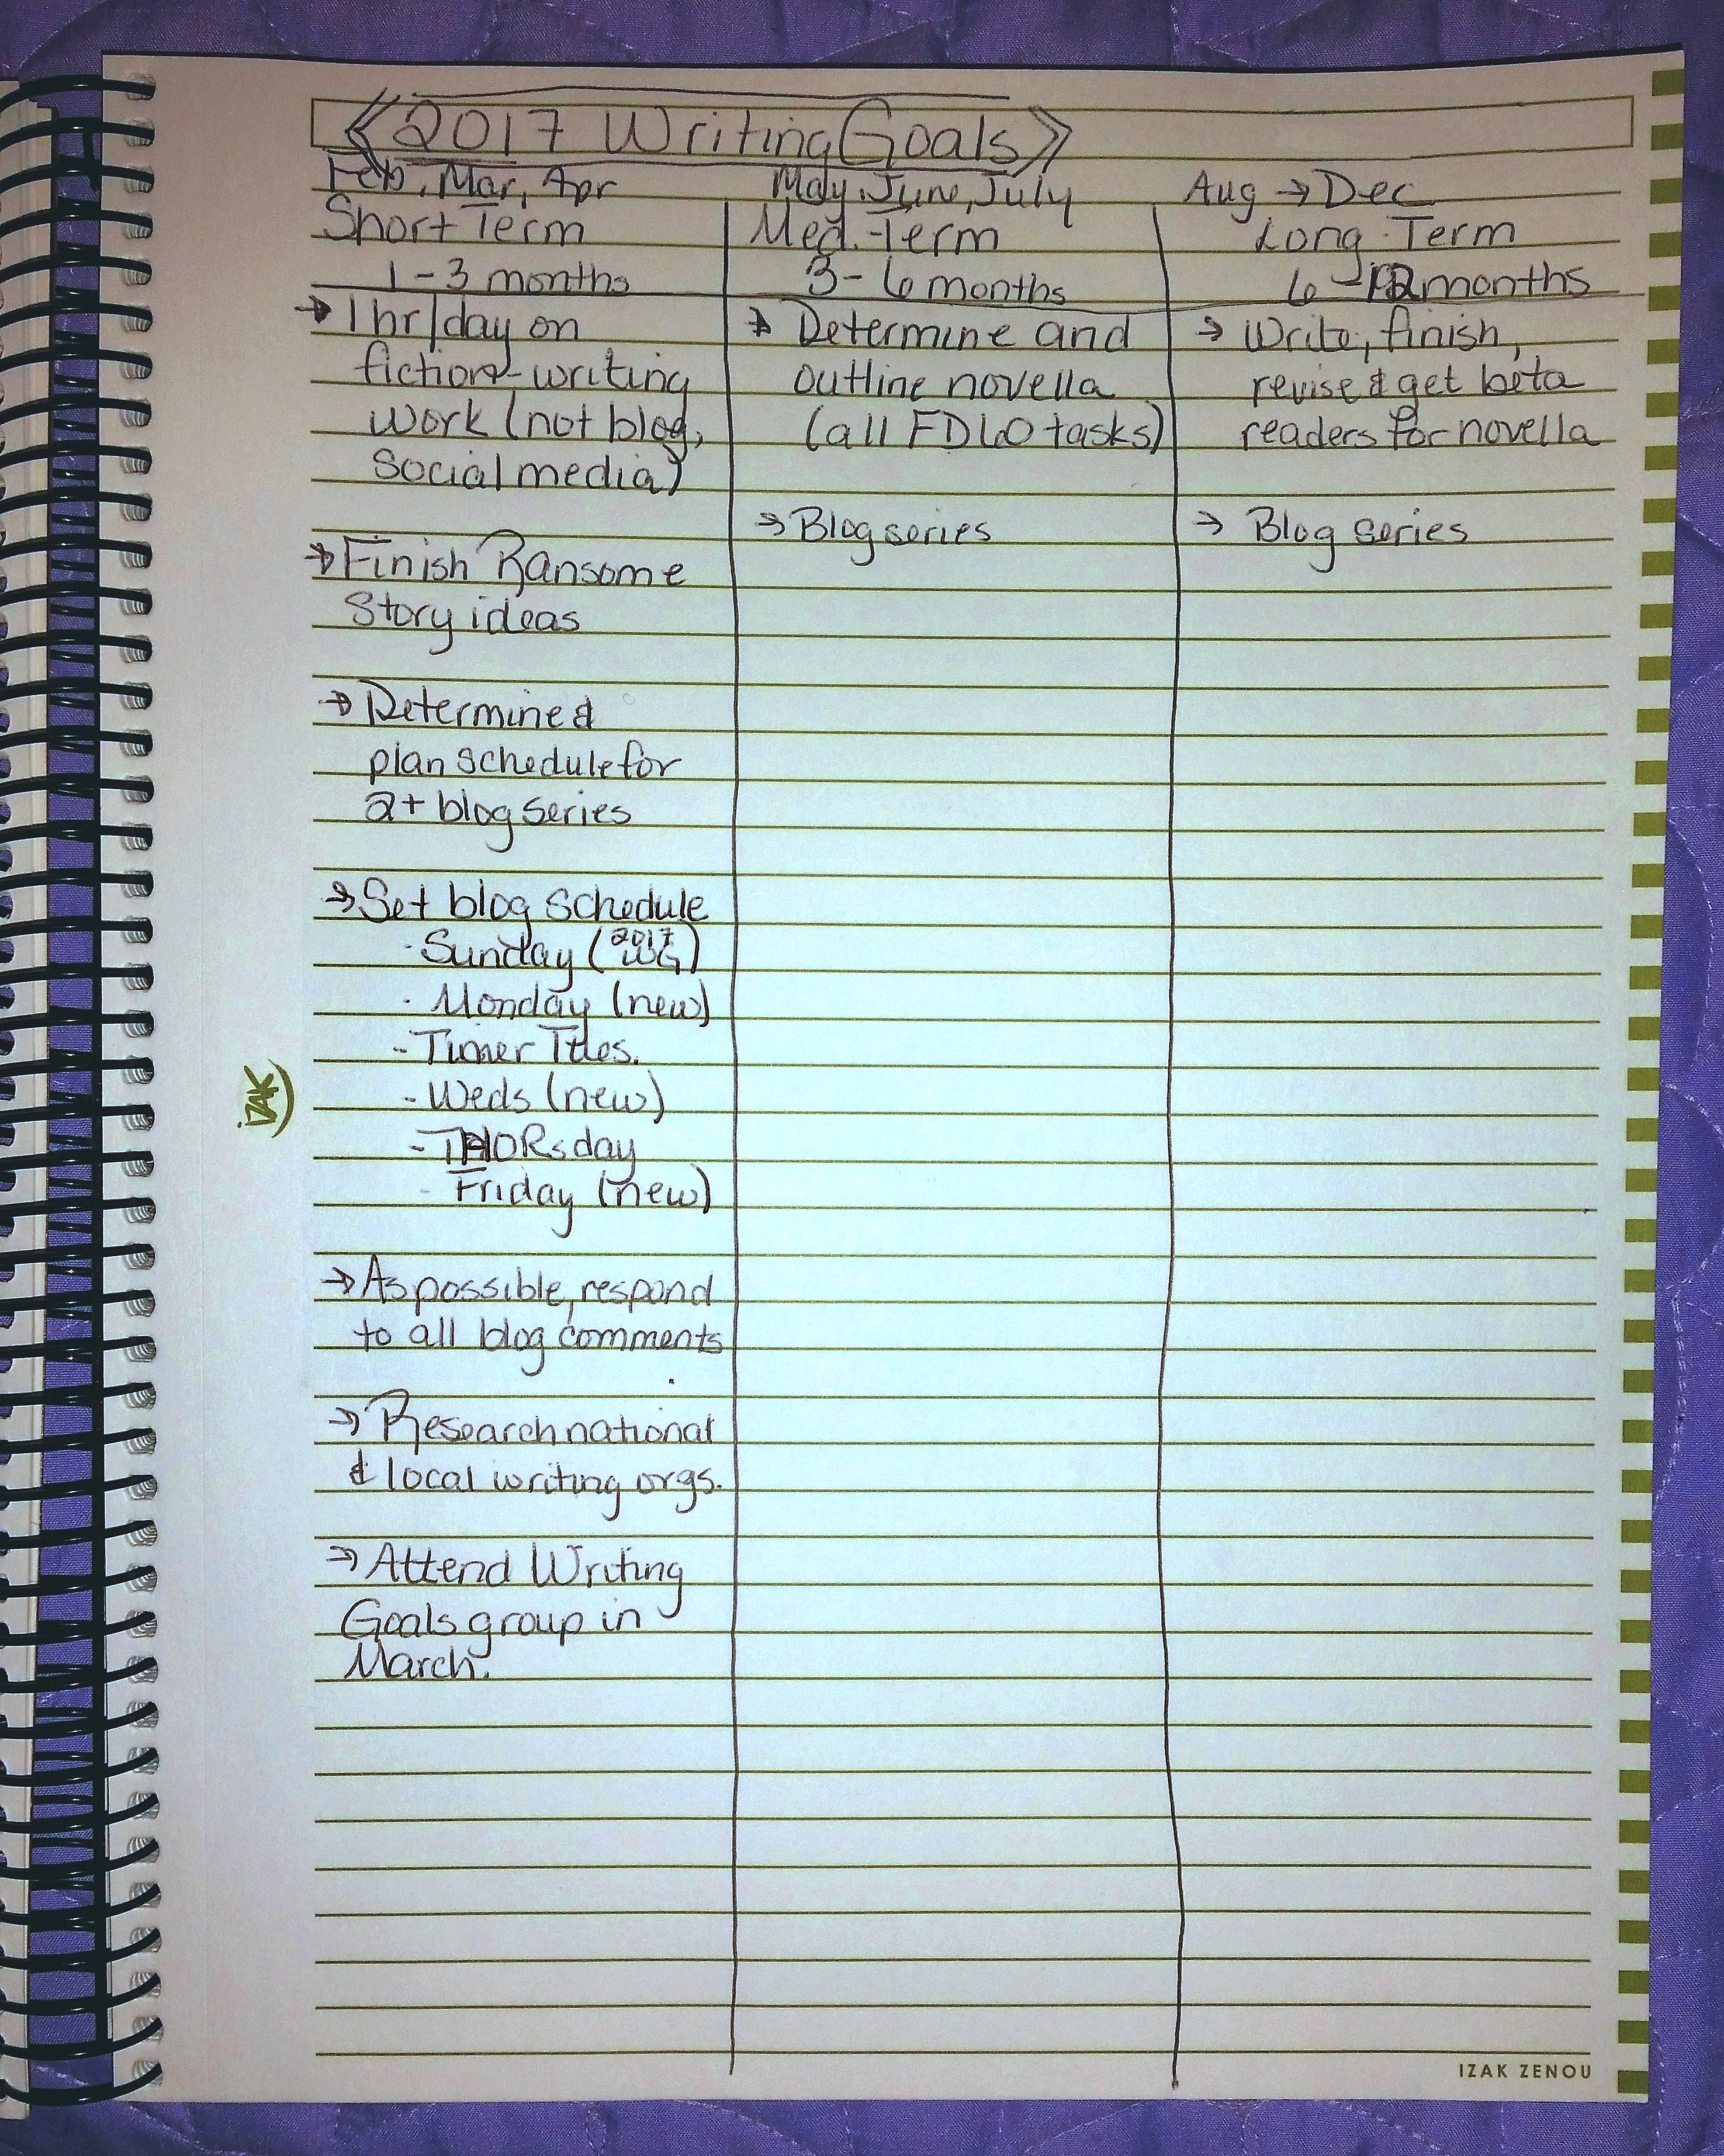 2017 Writing Goals
Feb, Mar, Apr
Short Term
1-3 months
→ 1hr/day on
fiction-writing
work (not blog,
social media)
→ Finish Ransome
Story ideas
→ Determine &
plan schedule for
2+ blog series
→ Set blog schedule
· Sunday (2017 WG)
· Monday (new)
- Timer Titles.
- Weds (new)
- THORsday
- Friday (new)
→ As possible, respond
to all blog comments
→ Research national
& local writing orgs.
→ Attend Writing
Goals group in
March.
May, June, July
Med.-Term
3-6 months
→ Determine and
outline novella
(all FDLO tasks)
→ Blog series
Aug → Dec
Long-Term
6-12 months
→ Write, finish,
revise & get beta
readers for novella
→ Blog series
iZAK
IZAK ZENOU